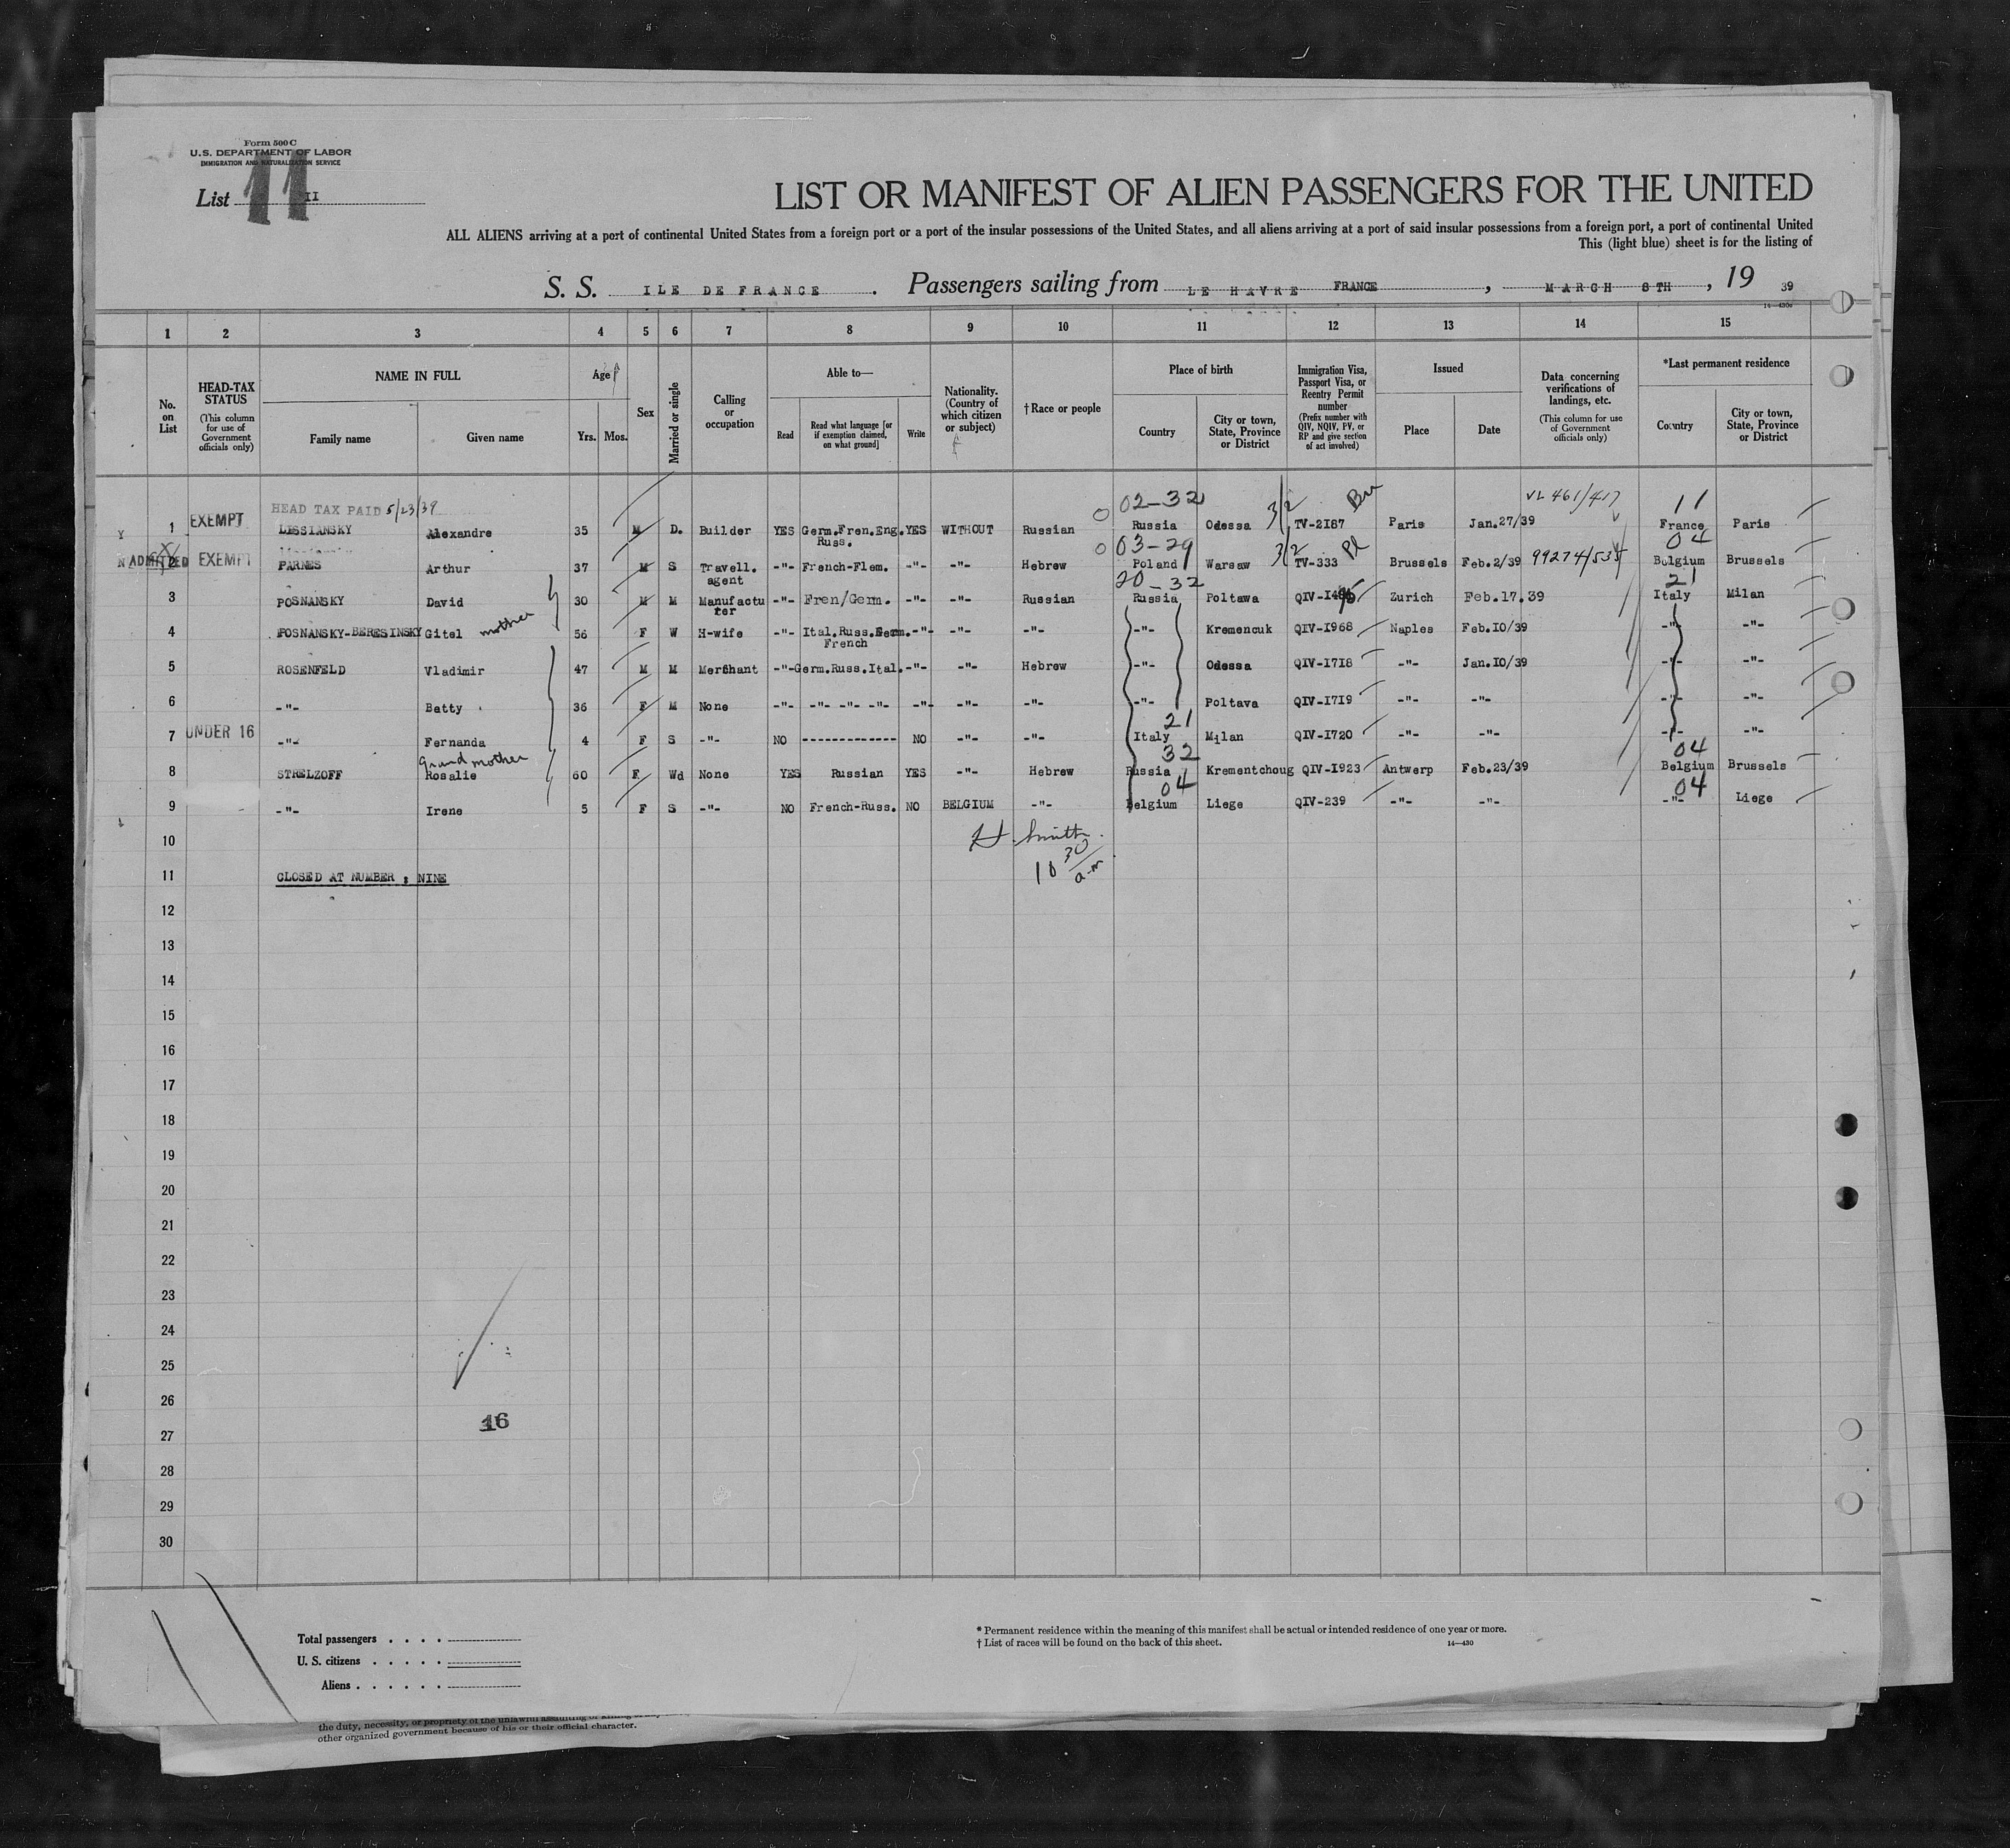 Form 500 C
U.S. DEPARTMENT OF LABOR
IMMIGRATION AND NATURALIZATION SERVICE
List 11 II
LIST OR MANIFEST OF ALIEN PASSENGERS FOR THE UNITED
ALL ALIENS arriving at a port of continental United States from a foreign port or a port of the insular possessions of the United States, and all aliens arriving at a port of said insular possessions from a foreign port, a port of continental United
This (light blue) sheet is for the listing of
S. S. ILE DE FRANCE . Passengers sailing from LE HAVRE FRANCE , MARCH 8TH , 19 39
14—430c
1 2 3 4 5 6 7 8 9 10 11 12 13 14 15
No. on List
HEAD-TAX STATUS (This column for use of Government officials only)
NAME IN FULL
Family name Given name
Age
Yrs. Mos.
Sex
Married or single
Calling or occupation
Able to—
Read Read what language [or if exemption claimed, on what ground] Write
Nationality. (Country of which citizen or subject)
†Race or people
Place of birth
Country City or town, State, Province or District
Immigration Visa, Passport Visa, or Reentry Permit number (Prefix number with QIV, NQIV, PV, or RP and give section of act involved)
Issued
Place Date
Data concerning verifications of landings, etc. (This column for use of Government officials only)
*Last permanent residence
Country City or town, State, Province or District
HEAD TAX PAID 5/23/39 02-32 3/2 VL 461/417 11
1 EXEMPT LISSIANSKY Alexandre 35 M D. Builder YES Germ.Fren.Eng. YES WITHOUT Russian Russia Odessa TV-2187 Paris Jan.27/39 France Paris
Russ.
03-29 3/2 Pl 04
ADMITTED 2 EXEMPT PARNES Arthur 37 M S Travell. -"- French-Flem. -"- -"- Hebrew Poland Warsaw TV-333 Brussels Feb.2/39 99274/535 Belgium Brussels
agent
20-32 21
3 POSNANSKY David 30 M M Manufactu -"- Fren/Germ. -"- -"- Russian Russia Poltawa Zurich Feb.17.39 Italy Milan
rer
4 POSNANSKY-BERESINSKY Gitel mother 56 F W H-wife -"- Ital.Russ.Germ. -"- -"- -"- -"- Kremencuk QIV-1968 Naples Feb.10/39 -"- -"-
French
5 ROSENFELD Vladimir 47 M M Merchant -"- Germ.Russ.Ital. -"- -"- Hebrew -"- Odessa QIV-1718 -"- Jan.10/39 -"- -"-
6 -"- Betty 36 F M None -"- -"- -"- -"- -"- -"- -"- -"- Poltava QIV-1719 -"- -"- -"- -"-
21
7 UNDER 16 -"- Fernanda 4 F S -"- NO ------------- NO -"- -"- Italy Milan QIV-1720 -"- -"- -"- -"-
Grand mother 32 04
8 STRELZOFF Rosalie 60 F Wd None YES Russian YES -"- Hebrew Russia Krementchoug QIV-1923 Antwerp Feb.23/39 Belgium Brussels
04 04
9 -"- Irene 5 F S -"- NO French-Russ. NO BELGIUM -"- Belgium Liege QIV-239 -"- -"- -"- Liege
10 H. Smith
10 30 a-m
11 CLOSED AT NUMBER : NINE
12
13
14
15
16
17
18
19
20
21
22
23
24
25
26
27
28
29
30
16
Total passengers . . . .
U. S. citizens . . . . .
Aliens . . . . . .
* Permanent residence within the meaning of this manifest shall be actual or intended residence of one year or more.
† List of races will be found on the back of this sheet.
14—430
the duty, necessity, or propriety of the unlawful assaulting or killing of
other organized government because of his or their official character.